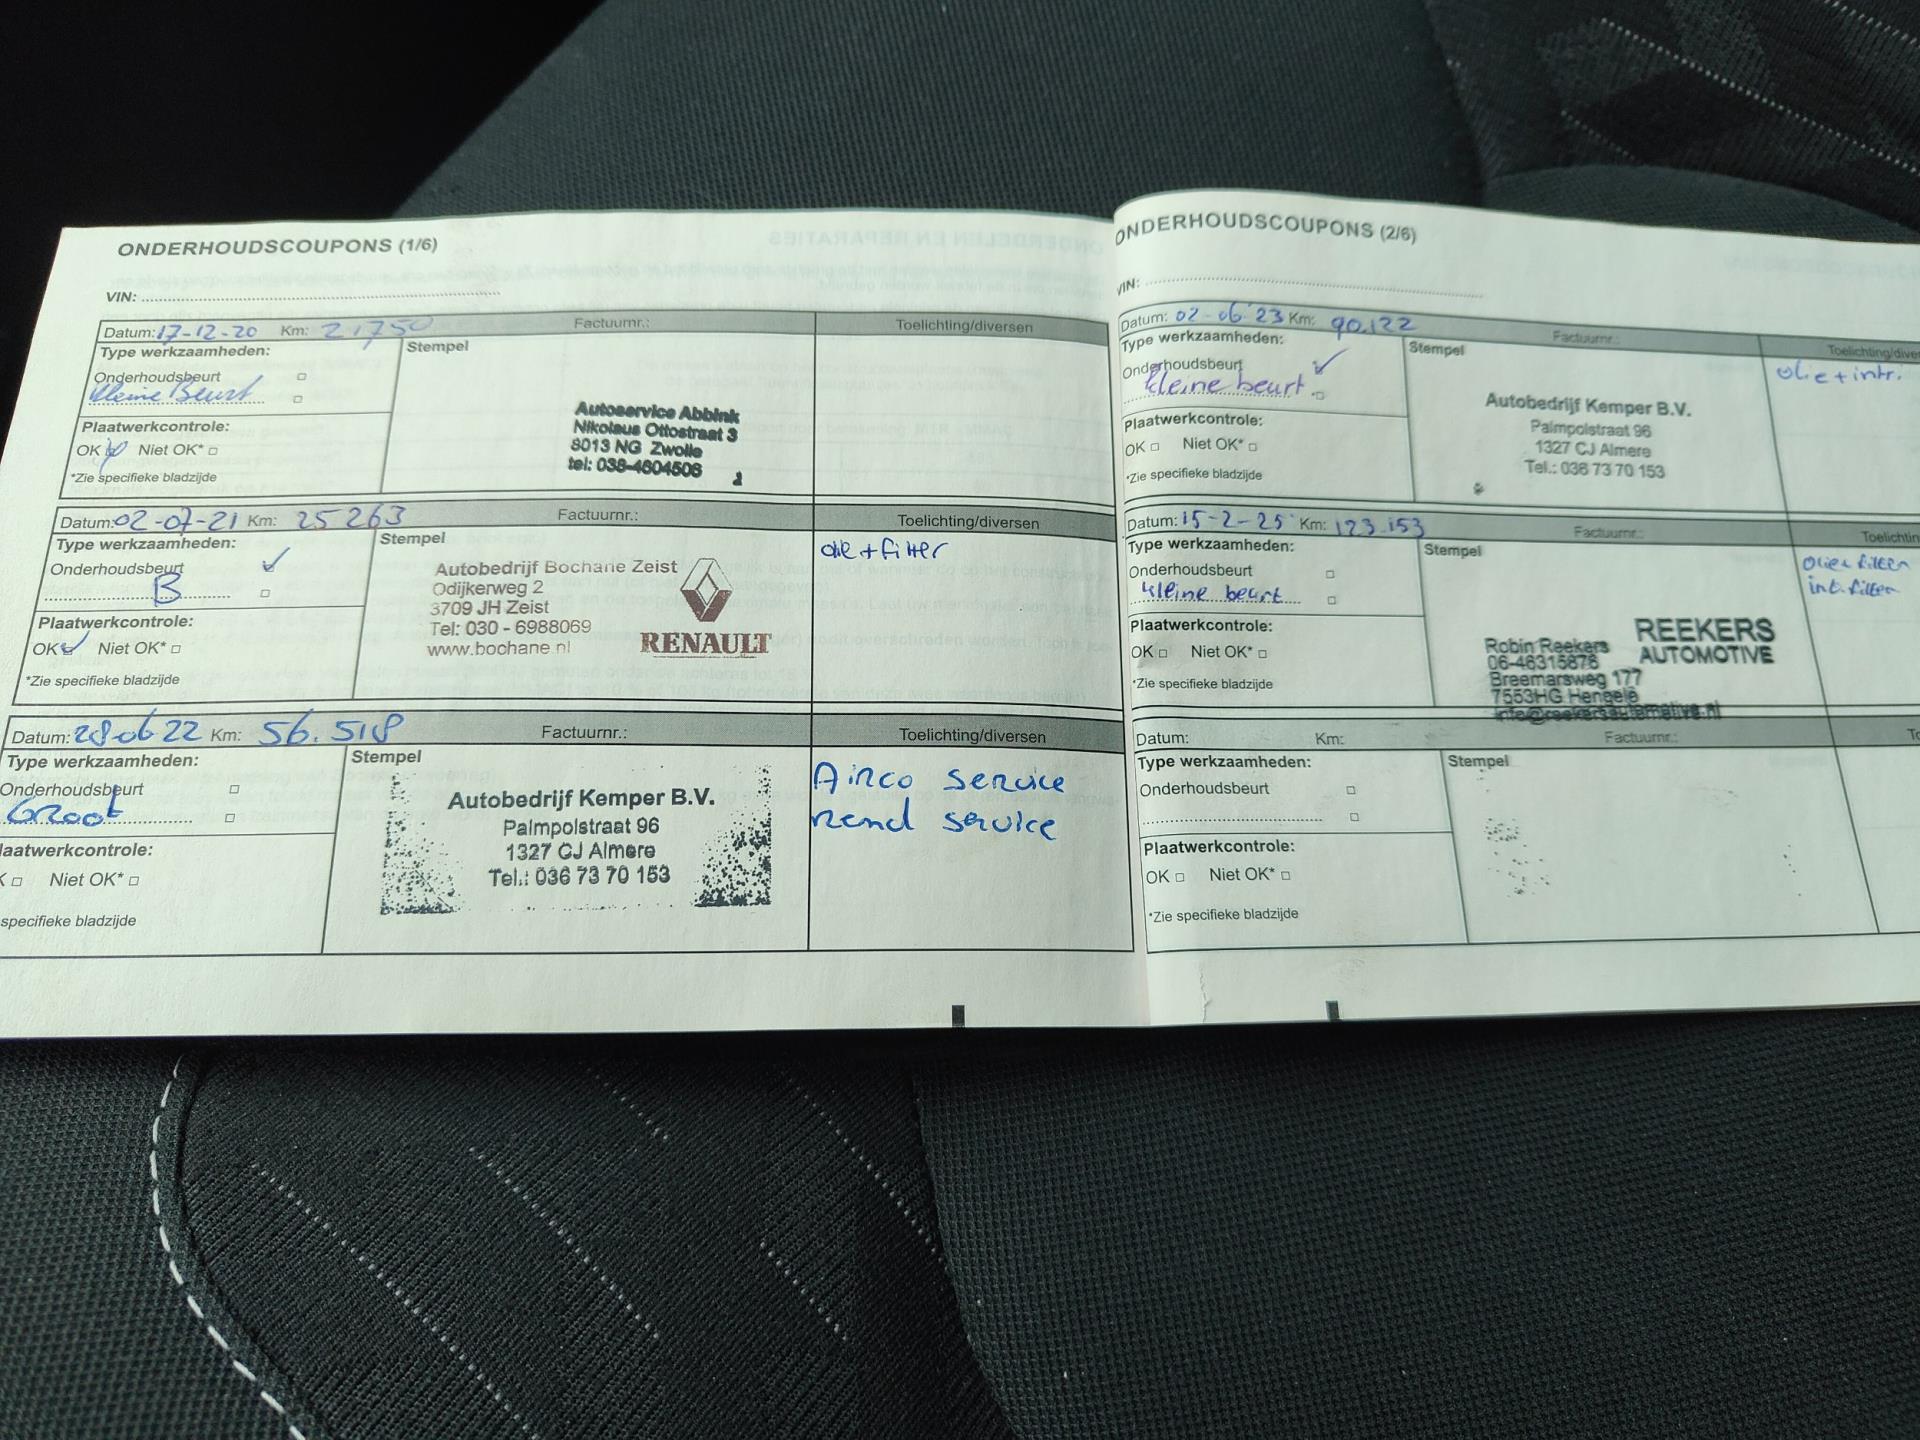 ONDERHOUDSCOUPONS (1/6)
VIN:
Datum: 17-12-20 Km: 21750 Factuurnr.: Toelichting/diversen
Type werkzaamheden: Stempel
Onderhoudsbeurt
kleine Beurt
Plaatwerkcontrole:
OK Niet OK*
*Zie specifieke bladzijde
Autoservice Abbink
Nikolaus Ottostraat 3
8013 NG Zwolle
tel: 038-4604506
Datum: 02-07-21 Km: 25263 Factuurnr.: Toelichting/diversen
Type werkzaamheden: Stempel
Onderhoudsbeurt
B
Plaatwerkcontrole:
OK Niet OK*
*Zie specifieke bladzijde
Autobedrijf Bochane Zeist
Odijkerweg 2
3709 JH Zeist
Tel: 030 - 6988069
www.bochane.nl
RENAULT
olie + filter
Datum: 28-06-22 Km: 56.518 Factuurnr.: Toelichting/diversen
Type werkzaamheden: Stempel
Onderhoudsbeurt
Groot
laatwerkcontrole:
K Niet OK*
specifieke bladzijde
Autobedrijf Kemper B.V.
Palmpolstraat 96
1327 CJ Almere
Tel.: 036 73 70 153
Airco service
Rend service
ONDERHOUDSCOUPONS (2/6)
VIN:
Datum: 02-06-23 Km: 90.122 Factuurnr.: Toelichting/diver
Type werkzaamheden: Stempel
Onderhoudsbeurt
kleine beurt
Plaatwerkcontrole:
OK Niet OK*
*Zie specifieke bladzijde
Autobedrijf Kemper B.V.
Palmpolstraat 96
1327 CJ Almere
Tel.: 036 73 70 153
olie + intr.
Datum: 15-2-25 Km: 123.153 Factuurnr.: Toelichtin
Type werkzaamheden: Stempel
Onderhoudsbeurt
kleine beurt
Plaatwerkcontrole:
OK Niet OK*
*Zie specifieke bladzijde
REEKERS
AUTOMOTIVE
Robin Reekers
06-46315876
Breemarsweg 177
7553HG Hengelo
info@reekersautomotive.nl
olie + filter
int. filter
Datum: Km: Factuurnr.: To
Type werkzaamheden: Stempel
Onderhoudsbeurt
Plaatwerkcontrole:
OK Niet OK*
*Zie specifieke bladzijde